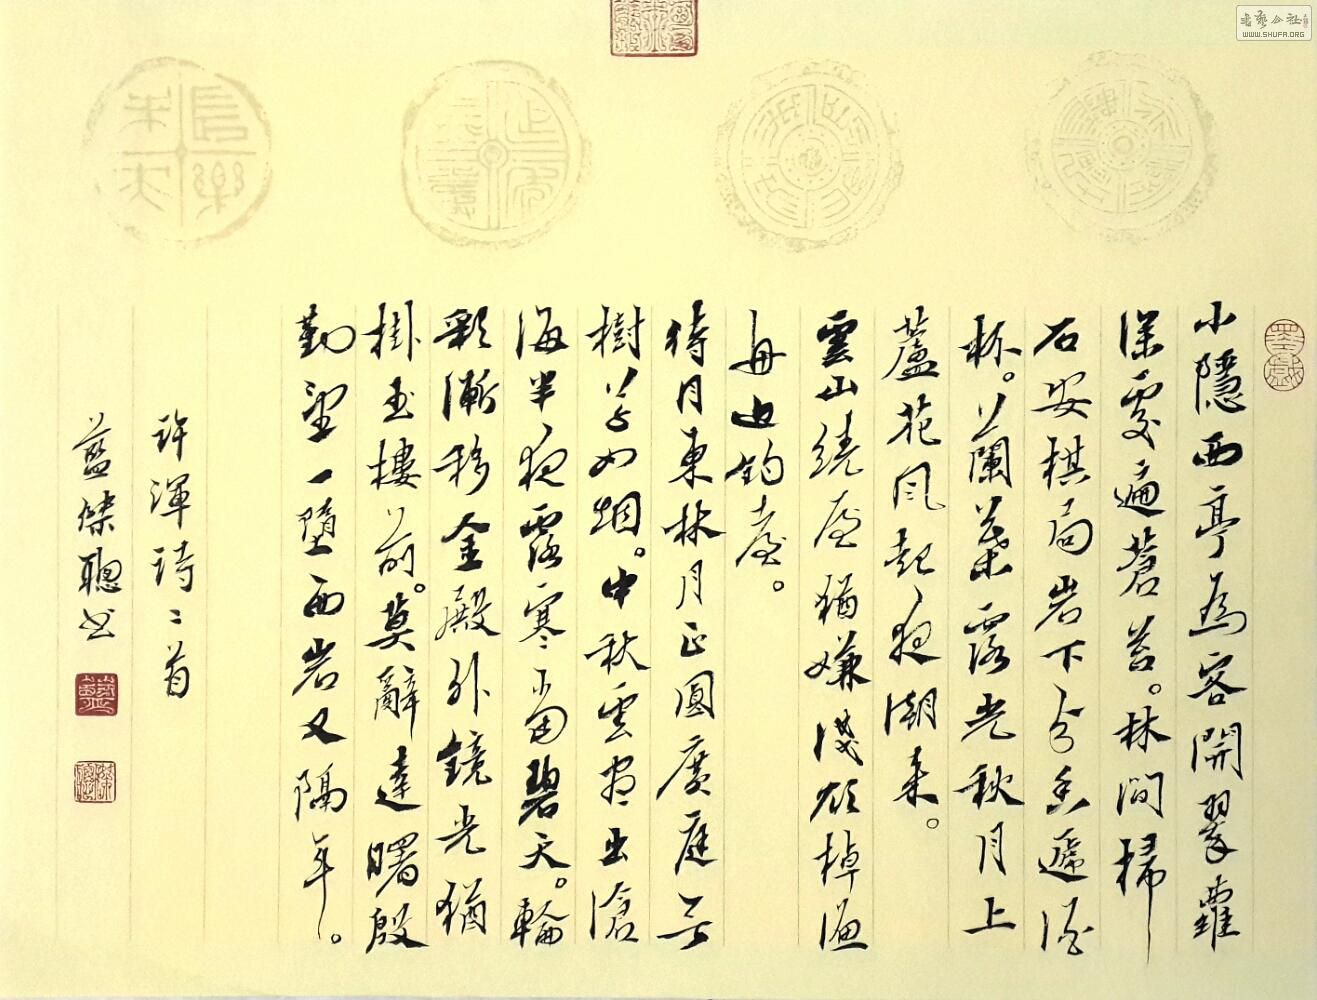 小隱西亭為客開翠蘿
深處遍蒼苔。林間掃
石安棋局岩下分泉遞酒
杯。蘭葉露光秋月上
蘆花風起夜潮來。
雲山繞屋猶嫌淺欲棹漁
舟近釣臺。
待月東林月正圓廣庭無
樹草如烟。中秋雲盡出滄
海半夜露寒當碧天。輪
彩漸移金殿外鏡光猶
掛玉樓前。莫辭達曙殷
勤望一墮西岩又隔年。
許渾詩二首
藍聰书
书艺公社
WWW.SHUFA.ORG